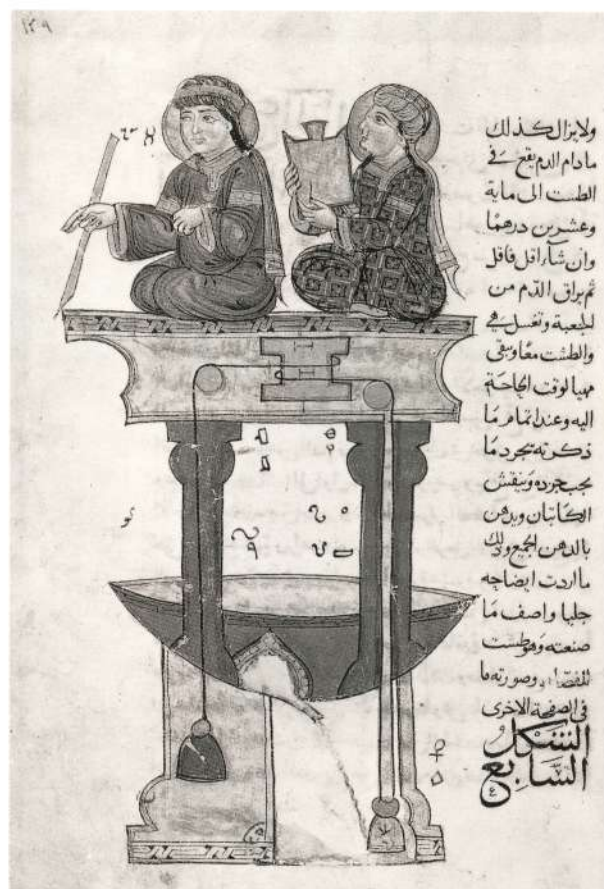 ١٣٩
ولا يزال كذلك
مادام الدم يقع في
الطست الى ماية
وعشرين درهمًا
وان شآء اقل فاقل
ثم يراق الدّم من
وتغسل هي
والطشت معًا ويبقى
مهيا لوقت الحاجة
اليه وعند اتمام مَا
ذكرته يجرد مَا
يجب جرده وَينقش
الكاتبان ويدهن
بالدهن الجميع وذلك
ما اردت ايضاحه
جليا واصف مَا
صنعته وَهو طست
للفصّاد وصورته ما
في الصفحة الاخرى
الشكل
السَّابع